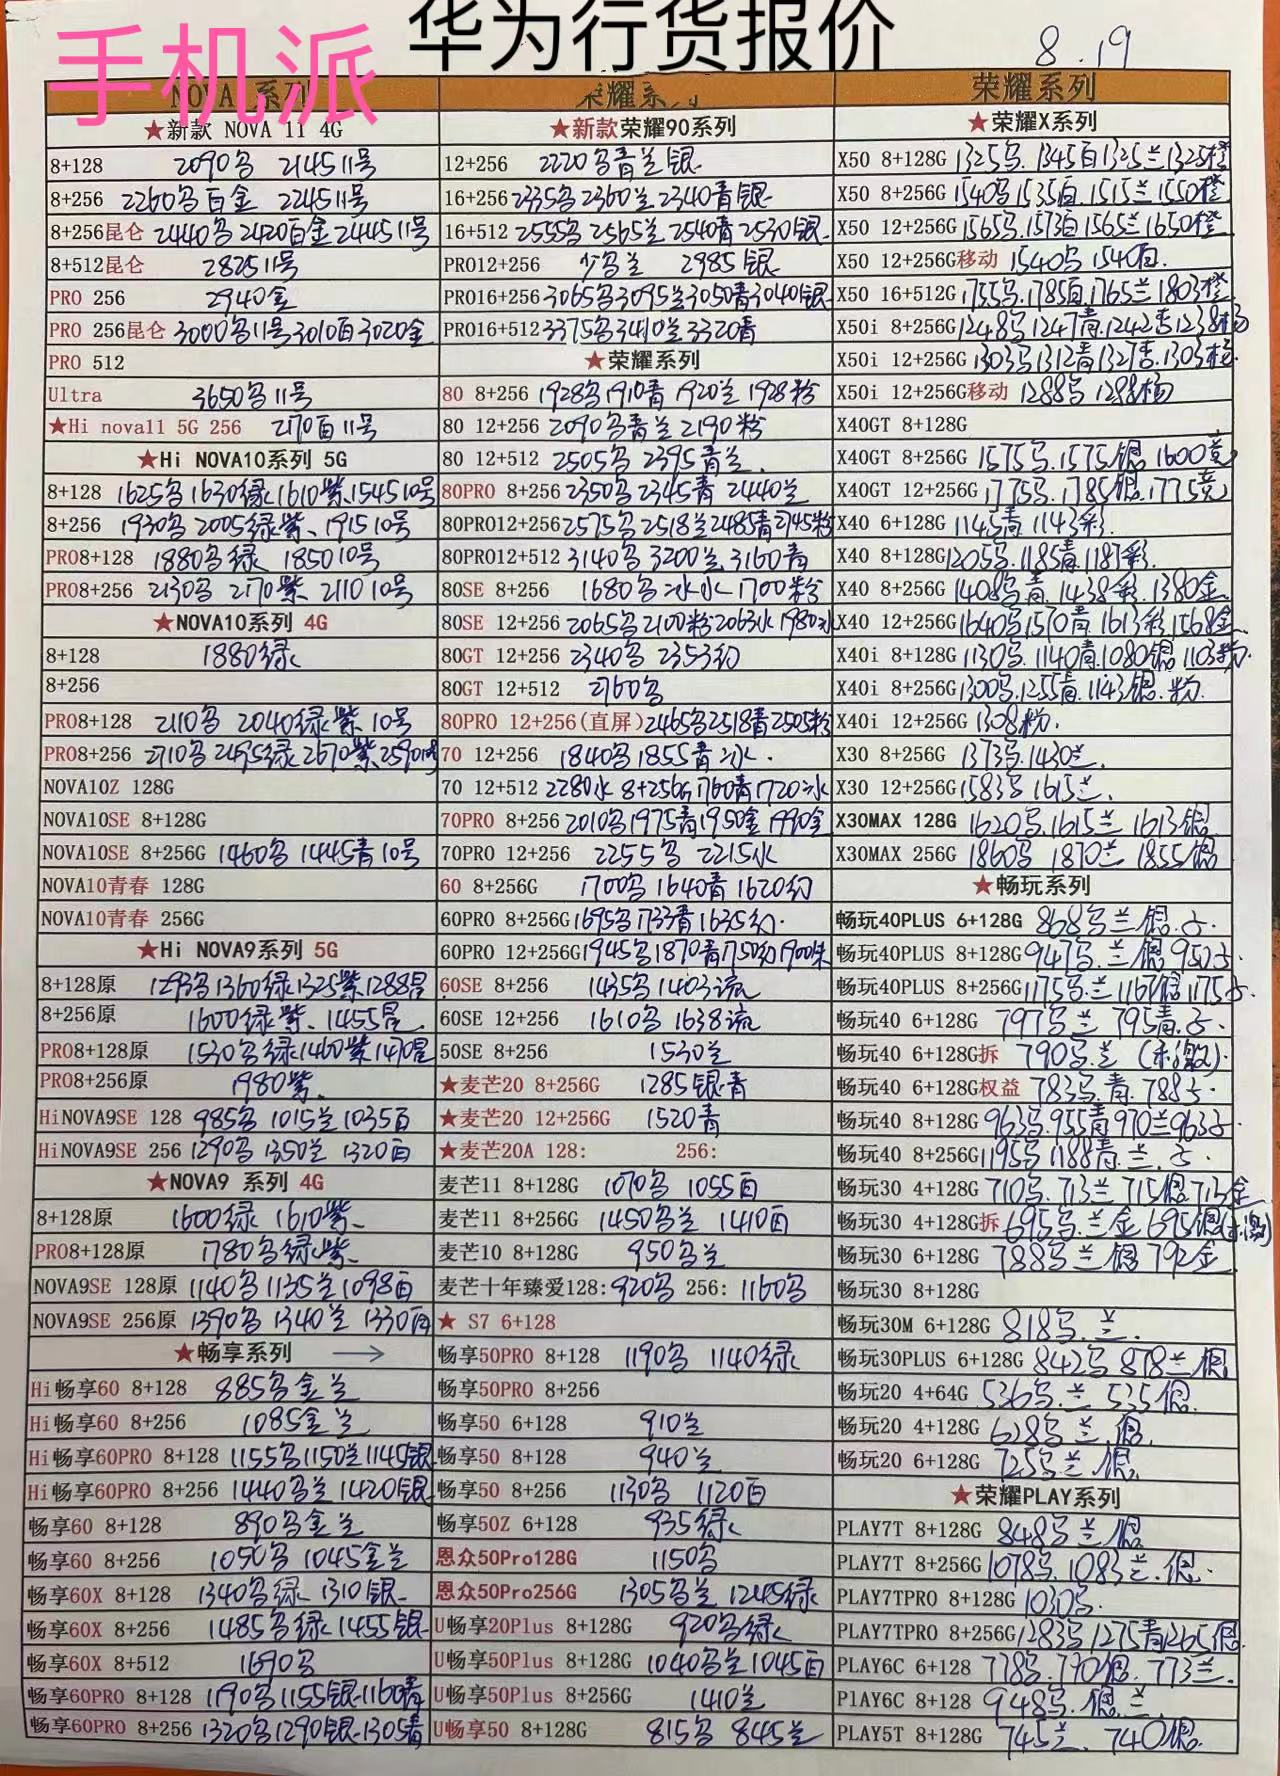 手机派
华为行货报价
8.19
NOVA 系列
★新款 NOVA 11 4G
8+128 2090鸟 2145 11号
8+256 2260鸟白金 2245 11号
8+256昆仑 2440鸟 2420白金 2445 11号
8+512昆仑 2825 11号
PRO 256 2940金
PRO 256昆仑 3000鸟11号 3010白 3020金
PRO 512
Ultra 3650鸟11号
★Hi nova11 5G 256 2170白11号
★Hi NOVA10系列 5G
8+128 1625鸟 1630绿 1610紫 1545 10号
8+256 1930鸟 2005绿紫、1915 10号
PRO8+128 1880鸟绿 1850 10号
PRO8+256 2130鸟 2170紫 2110 10号
★NOVA10系列 4G
8+128 1880绿
8+256
PRO8+128 2110鸟 2040绿紫 10号
PRO8+256 2710鸟 2495绿 2670紫
NOVA10Z 128G
NOVA10SE 8+128G
NOVA10SE 8+256G 1460鸟 1445青 10号
NOVA10青春 128G
NOVA10青春 256G
★Hi NOVA9系列 5G
8+128原 1293鸟 1360绿 1325紫 1288星
8+256原 1600绿紫、1455星
PRO8+128原 1530鸟绿 1460紫 1470星
PRO8+256原 1980紫
HiNOVA9SE 128 985鸟 1015兰 1035白
HiNOVA9SE 256 1290鸟 1350兰 1320白
★NOVA9 系列 4G
8+128原 1600绿 1610紫
PRO8+128原 1780鸟绿紫
NOVA9SE 128原 1140鸟 1135兰 1098白
NOVA9SE 256原 1390鸟 1340兰 1330白
★畅享系列 →
Hi畅享60 8+128 885鸟金兰
Hi畅享60 8+256 1085金兰
Hi畅享60PRO 8+128 1155鸟 1150兰 1145银
Hi畅享60PRO 8+256 1440鸟兰 1420银
畅享60 8+128 890鸟金兰
畅享60 8+256 1050鸟 1045金兰
畅享60X 8+128 1340鸟绿 1310银
畅享60X 8+256 1485鸟绿 1455银
畅享60X 8+512 1690鸟
畅享60PRO 8+128 1190鸟 1155银 1160青
畅享60PRO 8+256 1320鸟 1290银 1305青
荣耀系列
★新款荣耀90系列
12+256 2220鸟青兰银
16+256 2335鸟 2360兰 2340青银
16+512 2555鸟 2565兰 2540青 2530银
PRO12+256 少鸟兰 2985银
PRO16+256 3065鸟 3095兰 3050青 3040银
PRO16+512 3375鸟 3410兰 3320青
★荣耀系列
80 8+256 1928鸟 1910青 1920兰 1928粉
80 12+256 2090鸟青兰 2190粉
80 12+512 2505鸟 2395青兰
80PRO 8+256 2350鸟 2345青 2440兰
80PRO12+256 2575鸟 2518兰 2485青 2745粉
80PRO12+512 3140鸟 3200兰 3160青
80SE 8+256 1680鸟冰水 1700粉
80SE 12+256 2065鸟 2100粉 2063水 1980冰
80GT 12+256 2340鸟 2353幻
80GT 12+512 2760鸟
80PRO 12+256(直屏) 2465鸟 2518青 2505粉
70 12+256 1840鸟 1855青冰.
70 12+512 2280水 8+256G 1760青 1720冰
70PRO 8+256 2010鸟 1975青 1950金 1990金
70PRO 12+256 2255鸟 2215水
60 8+256G 1700鸟 1640青 1620幻
60PRO 8+256G 1695鸟 1733青 1635幻.
60PRO 12+256G 1945鸟 1870青 1750幻 1900朱
60SE 8+256 1435鸟 1403流
60SE 12+256 1610鸟 1638流
50SE 8+256 1530兰
★麦芒20 8+256G 1285银青
★麦芒20 12+256G 1520青
★麦芒20A 128: 256:
麦芒11 8+128G 1070鸟 1055白
麦芒11 8+256G 1450鸟兰 1410白
麦芒10 8+128G 950鸟兰
麦芒十年臻爱128: 920鸟 256: 1160鸟
★ S7 6+128
畅享50PRO 8+128 1190鸟 1140绿
畅享50PRO 8+256
畅享50 6+128 910兰
畅享50 8+128 940兰
畅享50 8+256 1130鸟 1120白
畅享50Z 6+128 935绿
恩众50Pro128G 1150鸟
恩众50Pro256G 1305鸟兰 1245绿
U畅享20Plus 8+128G 920鸟绿
U畅享50Plus 8+128G 1040鸟兰 1045白
U畅享50Plus 8+256G 1410兰
U畅享50 8+128G 815鸟 845兰
荣耀系列
★荣耀X系列
X50 8+128G 1325鸟. 1345白 1325兰 1325橙
X50 8+256G 1540鸟 1535白. 1515兰 1550橙
X50 12+256G 1565鸟. 1573白 1565兰 1650橙
X50 12+256G移动 1540鸟 1540白.
X50 16+512G 1755鸟. 1785白. 1765兰 1803橙
X50i 8+256G 1248鸟 1247青. 1242杏 1238杨
X50i 12+256G 1303鸟 1312青 1327杏. 1303杨
X50i 12+256G移动 1288鸟 1288杨
X40GT 8+128G
X40GT 8+256G 1575鸟. 1575银 1600竞
X40GT 12+256G 1775鸟. 1785银. 1775竞
X40 6+128G 1145青 1143彩.
X40 8+128G 1205鸟. 1185青. 1187彩.
X40 8+256G 1408鸟青. 1438彩. 1380金.
X40 12+256G 1640鸟 1570青 1613彩 1568金
X40i 8+128G 1130鸟. 1140青. 1080银 1103粉.
X40i 8+256G 1300鸟. 1255青. 1143银.粉.
X40i 12+256G 1308粉.
X30 8+256G 1373鸟. 1430兰.
X30 12+256G 1583鸟 1615兰.
X30MAX 128G 1620鸟. 1615兰 1613银.
X30MAX 256G 1860鸟 1870兰 1855银
★畅玩系列
畅玩40PLUS 6+128G 868鸟兰银.
畅玩40PLUS 8+128G 947鸟.兰银 950
畅玩40PLUS 8+256G 1175鸟.兰 1167银 1175
畅玩40 6+128G 797鸟兰 795青.
畅玩40 6+128G拆 790鸟.兰 (未激).
畅玩40 6+128G权益 783鸟.青. 788
畅玩40 8+128G 963鸟. 955青 970兰 963
畅玩40 8+256G 1195鸟 1188青.兰.
畅玩30 4+128G 710鸟. 713兰 715银 713金
畅玩30 4+128G拆 695鸟.兰金 695银(未激)
畅玩30 6+128G 788鸟兰银 792金
畅玩30 8+128G
畅玩30M 6+128G 818鸟.兰.
畅玩30PLUS 6+128G 842鸟 878兰银
畅玩20 4+64G 536鸟.兰 535银.
畅玩20 4+128G 628鸟兰.银.
畅玩20 6+128G 725鸟兰.银.
★荣耀PLAY系列
PLAY7T 8+128G 848鸟兰银
PLAY7T 8+256G 1078鸟. 1083兰.银.
PLAY7TPRO 8+128G 1030鸟.
PLAY7TPRO 8+256G 1283鸟 1275青 1265银.
PLAY6C 6+128 778鸟. 770银. 773兰.
PlAY6C 8+128 948鸟.银.兰
PLAY5T 8+128G 745兰. 740银.